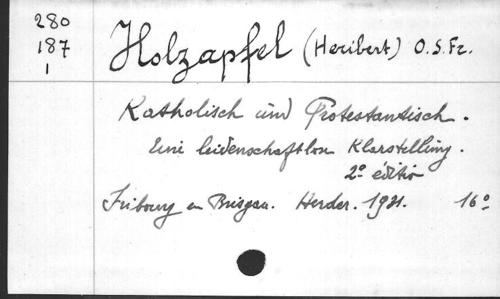 280
187
1
Holzapfel (Heribert) O.S.Fr.
Katholisch und Protestantisch.
Eine leidenschaftlose Klarstellung.
2e éditio
Fribourg en Brisgau. Herder. 1931. 16o